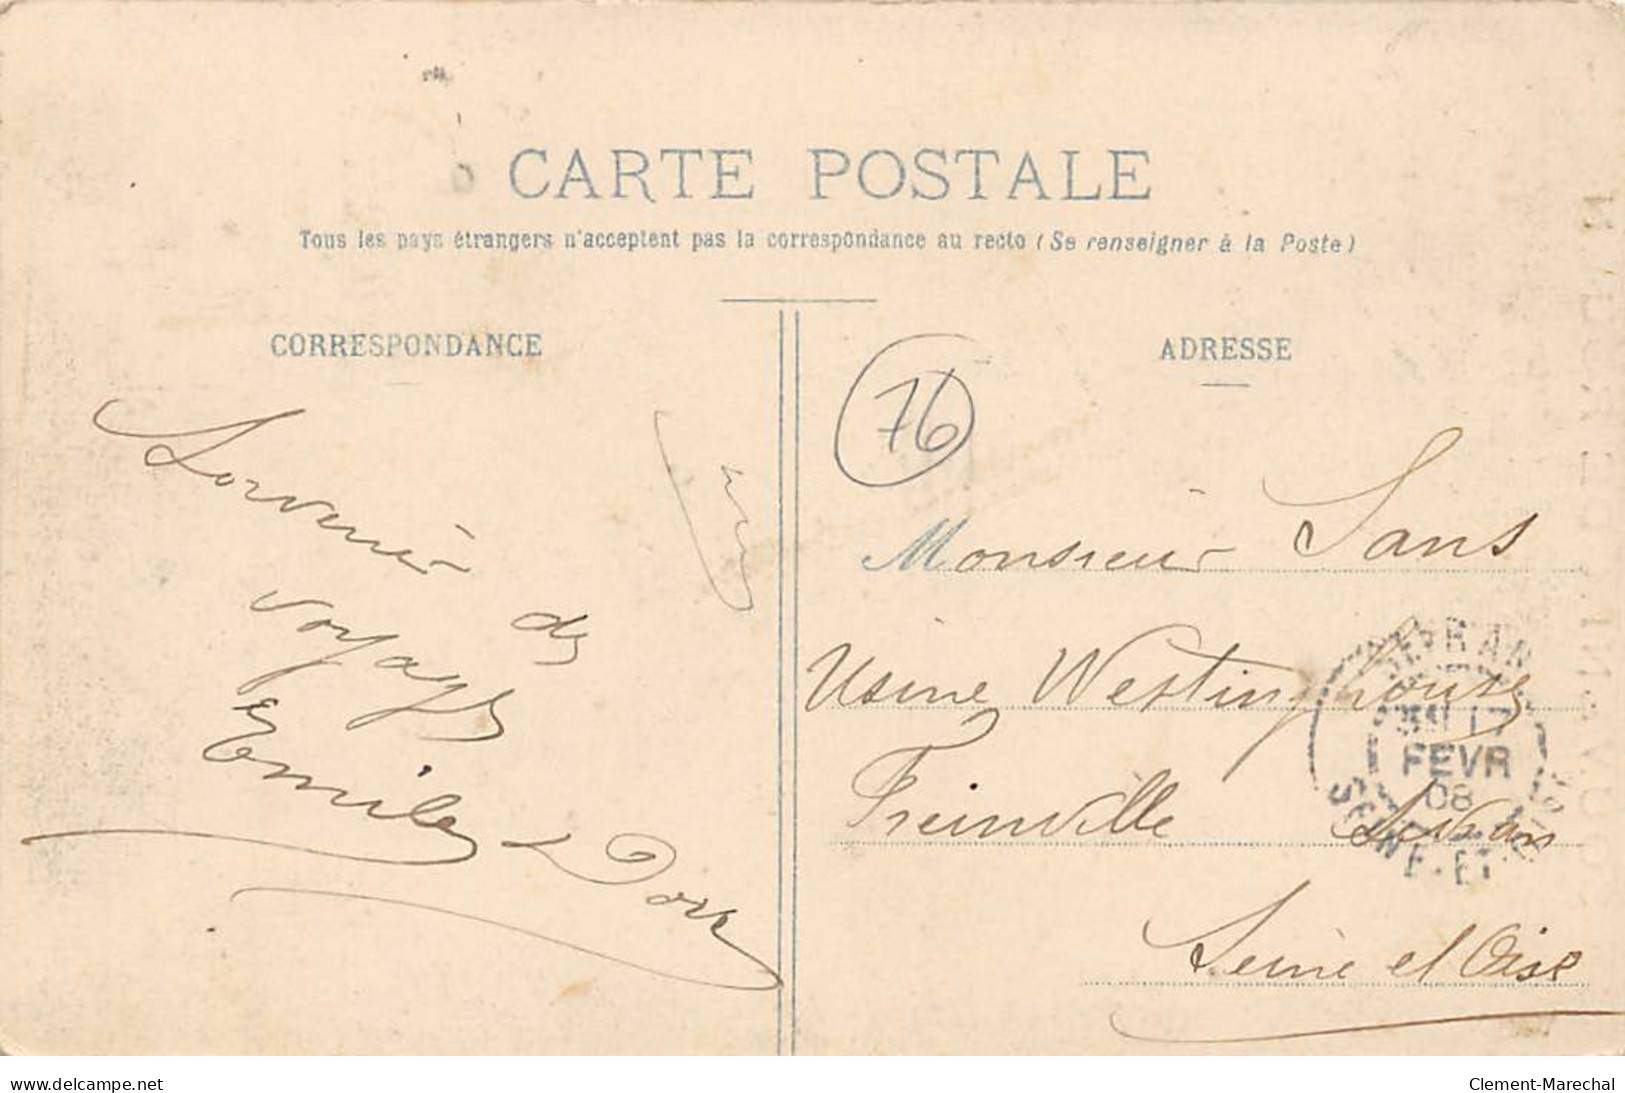 CARTE POSTALE
Tous les pays étrangers n'acceptent pas la correspondance au recto (Se renseigner à la Poste)
CORRESPONDANCE
Souvenir
des
voyages
Emile
ADRESSE
76
Monsieur Sans
Usine Westinghouse
Freinville Sevran
Seine et Oise
SEVRAN
17
FEVR
08
SEINE-ET-OISE
www.delcampe.net
Clement-Marechal